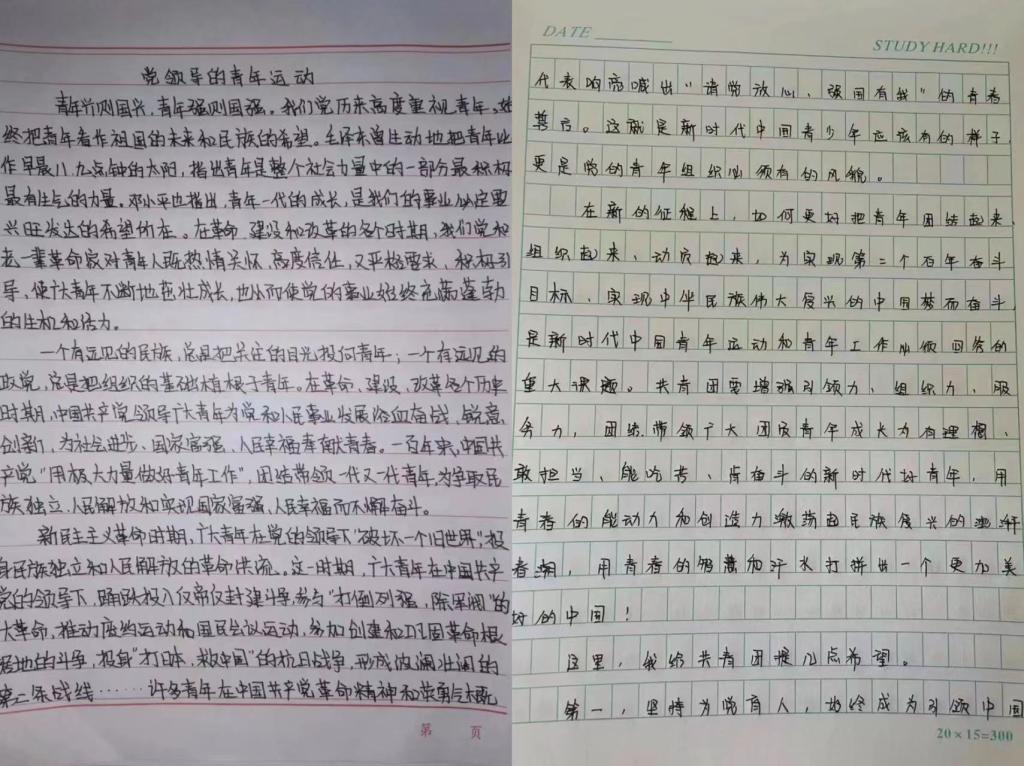 党领导的青年运动
青年兴则国兴,青年强则国强。我们党历来高度重视青年,始
终把青年看作祖国的未来和民族的希望。毛泽东曾生动地把青年比
作早晨八、九点钟的太阳,指出青年是整个社会力量中的一部分最积极
最有生气的力量。邓小平也指出,青年一代的成长,是我们的事业必定要
兴旺发达的希望所在。在革命、建设和改革的各个时期,我们党和
老一辈革命家对青年人既热情关怀、高度信任,又严格要求、积极引
导,使广大青年不断地茁壮成长,也从而使党的事业始终充满蓬勃
的生机和活力。
一个有远见的民族,总是把关注的目光投向青年;一个有远见的
政党,总是把组织的基础植根于青年。在革命、建设、改革各个历史
时期,中国共产党领导广大青年为党和人民事业发展浴血奋战、锐意
创新,为社会进步、国家富强、人民幸福奉献青春。一百年来,中国共
产党“用极大力量做好青年工作”,团结带领一代又一代青年为争取民
族独立、人民解放和实现国家富强、人民幸福而不懈奋斗。
新民主主义革命时期,广大青年在党的领导下“破坏一个旧世界”,投
身民族独立和人民解放的革命洪流。这一时期,广大青年在中国共产
党的领导下,踊跃投入反帝反封建斗争,参与“打倒列强,除军阀”的
大革命,推动废约运动和国民会议运动,参加创建和巩固革命根
据地的斗争,投身“打日本,救中国”的抗日战争,形成波澜壮阔的
第二条战线……许多青年在中国共产党革命精神和英勇气概
第 页
DATE
STUDY HARD!!!
代表响亮喊出“请党放心、强国有我”的青春
誓言。这就是新时代中国青少年应该有的样子,
更是党的青年组织必须有的风貌。
在新的征程上,如何更好把青年团结起来、
组织起来、动员起来,为实现第二个百年奋斗
目标、实现中华民族伟大复兴的中国梦而奋斗,
是新时代中国青年运动和青年工作必须回答的
重大课题。共青团要增强引领力、组织力、服
务力,团结带领广大团员青年成长为有理想、
敢担当、能吃苦、肯奋斗的新时代好青年,用
青春的能动力和创造力激荡起民族复兴的澎湃
春潮,用青春的智慧和汗水打拼出一个更加美
好的中国!
这里,我给共青团提几点希望。
第一,坚持为党育人,始终成为引领中国
20×15=300